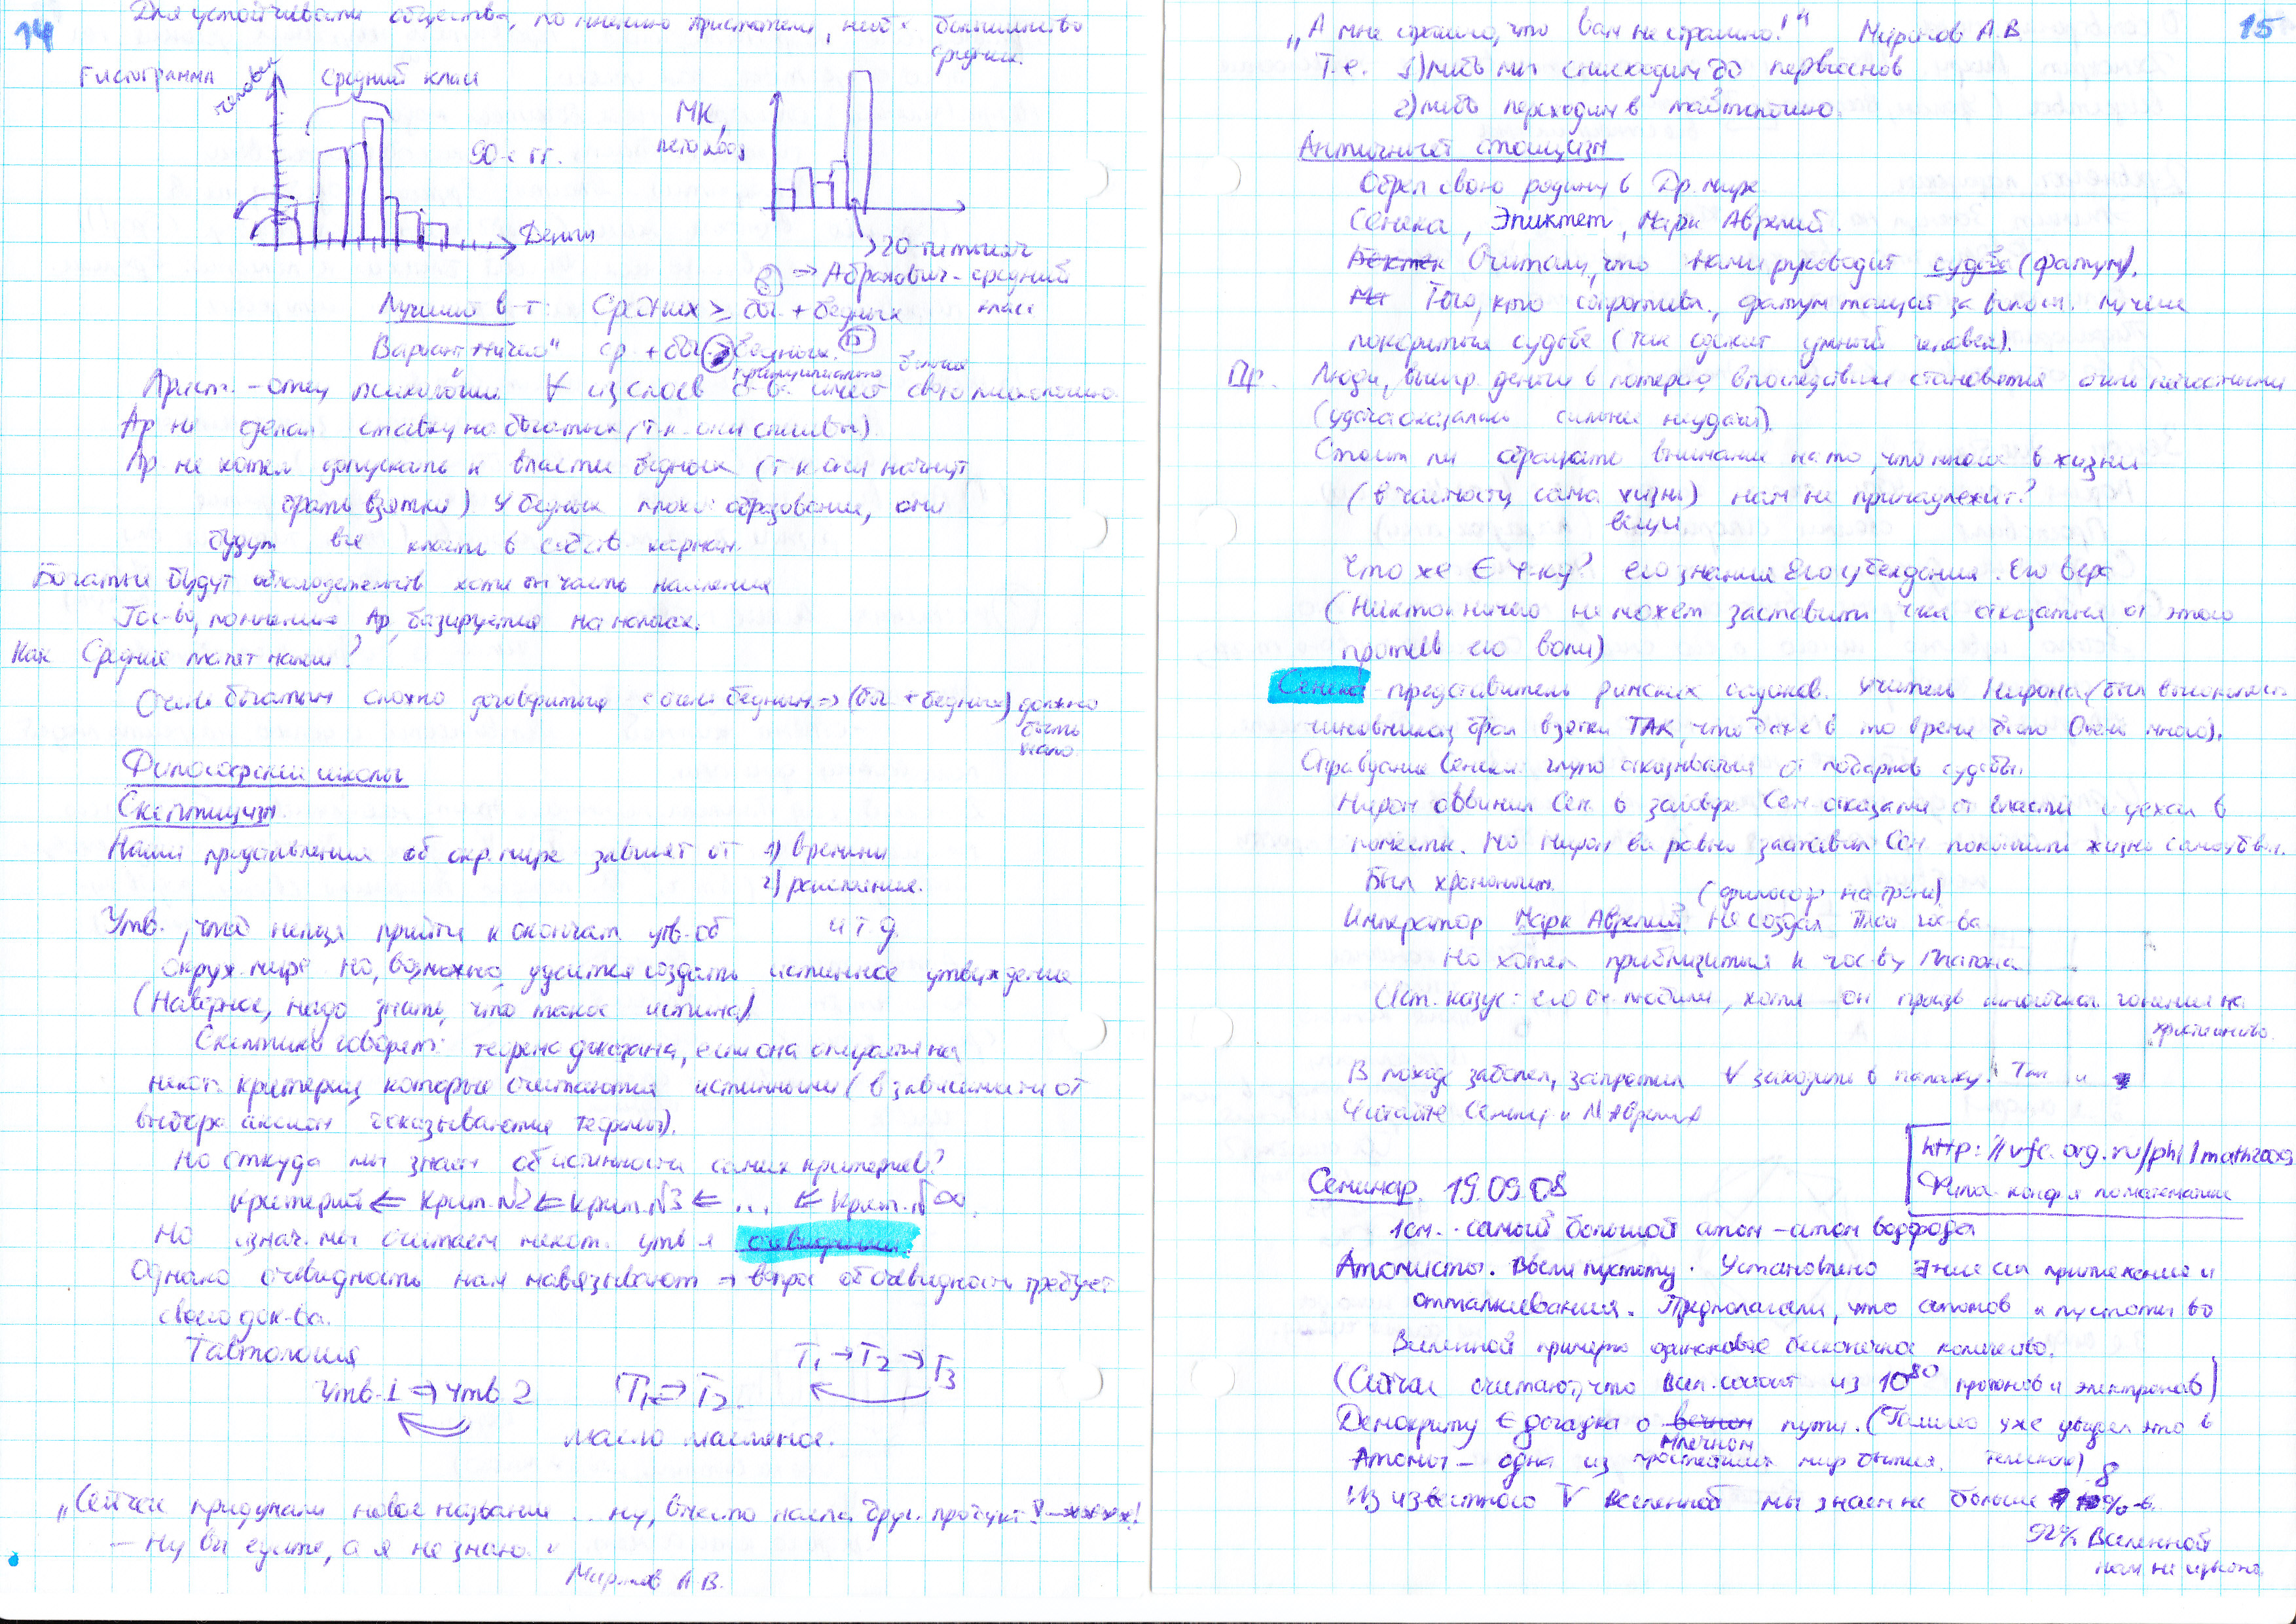 14
Для устойчивости общества, по мнению Аристотеля, необх. большинство
средних.
Гистограмма
человек
средний класс
90-е гг.
Деньги
МК,
>20-ти тысяч
⇒ Абрамович - средний
класс
Лучший в-т: Средних ≥ бог. + бедных
Вариант "ничего" ср. + бог. > бедных.
принципиально
Арист. - отец психологии. ∀ из слоев о-ва имеет свою психологию.
Ар не делал ставку на богатых (т.к. они спесивы).
Ар не хотел допускать к власти бедных (т.к. они начнут
брать взятки) У бедных плохое образование, они
будут все класть в собств. карман.
Богатые будут облагодетельств. хотя бы часть населения
Гос-во, по мнению Ар, базируется на налогах.
Как Средние платят налоги?
Очень богатым сложно договориться с очень бедными ⇒ (бог. + бедных) должно
быть
мало
Философские школы
Скептицизм.
Наши представления об окр. мире зависят от 1) времени
2) расстояния.
и т.д.
Утв., что нельзя прийти к окончат. утв. об
окруж. мире. Но, возможно, удастся создать истинное утверждение
(Наверное, надо знать, что такое истина)
Скептики говорят: теорема доказана, если она опирается на
некот. критерии, которые считаются истинными (в зависимости от
выбора аксиом доказываются теоремы).
Но откуда мы знаем об истинности самих критериев?
Критерий ⇐ Крит. №2 ⇐ Крит. №3 ⇐ ... ⇐ Крит. №∞.
Но изнач. мы считаем некот. утв-я очевидными.
Однако очевидность нам навязывают → вопрос об очевидности требует
своего док-ва.
Тавтология
Утв. 1 ⇒ Утв 2
T₁ ⇒ T₂.
T₁ → T₂ → T₃
масло масляное.
„Сейчас придумали новое название... ну, вместо масла. Друг. продукт!
— Ну вы едите, а я не знаю."
Миронов А.В.
15
„А мне страшно, что Вам не страшно!" Миронов А.В
Т.е. 1) либо мы снисходим до первооснов
2) либо переходим в тавтологию.
Античный стоицизм
Обрел свою родину в Др. мире
Сенека, Эпиктет, Марк Аврелий.
Считали, что нами руководит судьба (фатум).
Того, кто сопротивл., фатум тащит за волосы. Лучше
покориться судьбе (так сделает умный человек).
Пр. Люди, выигр. деньги в лотерею, впоследствии становятся очень несчастными
(удача оказалась сильнее неудачи).
Стоит ли обращать внимание на то, что многие в жизни
вещи
(в частности, сама жизнь) нам не принадлежит?
Что же ∈ ч-ку? его знания Его убеждения. Его вера
(Никто и ничего не может заставить чел. отказаться от этого
против его воли)
Сенека - представитель римских стоиков. Учитель Нерона (был высокопост.
чиновником, брал взятки ТАК, что даже в то время было Очень много).
Оправдание Сенеки: глупо отказываться от подарков судьбы.
Нерон обвинил Сен. в заговоре. Сен. отказался от власти и уехал в
поместье. Но Нерон все равно заставил Сен покончить жизнь самоубийст.
(философ на троне)
Император Марк Аврелий. Не создал гос-ва
Но хотел приблизиться к гос-ву Платона.
Ист. казус: его оч. любили, хотя он произв. гонения на
христианство.
В походе заболел, запретил ∀ заходить в палатку! Так и
Читайте Сенеку и М Аврелия
http://vfc.org.ru/phil/math2009
Фило. конф-я по математике
Семинар. 19.09.08
1 см. - самый большой атом - атом водорода
Атомисты. Ввели пустоту. Установлено ∃ние сил притяжения и
отталкивания. Предполагали, что атомов и пустоты во
Вселенной примерно одинаковое бесконечное количество.
(Сейчас считают, что Всел. состоит из 10⁸⁰ протонов и электронов)
Демокриту ∈ догадка о вечном пути. (Галилео уже увидел это в
млечном
телескоп)
Атомы - одна из простейших мир бытия.
Из известного V вселенной мы знаем не больше 8 %-в.
92% Вселенной
нам не известна